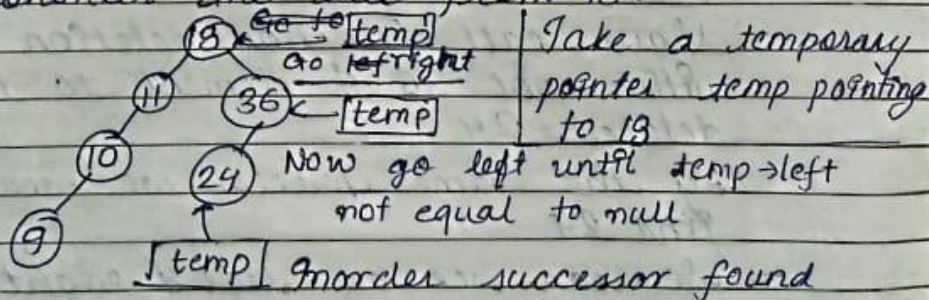 18 Go to temp
Go lef right
11 36 temp
Take a temporary
pointer temp pointing
to 18
10 24 Now go left until temp→left
not equal to null
9
temp Inorder successor found